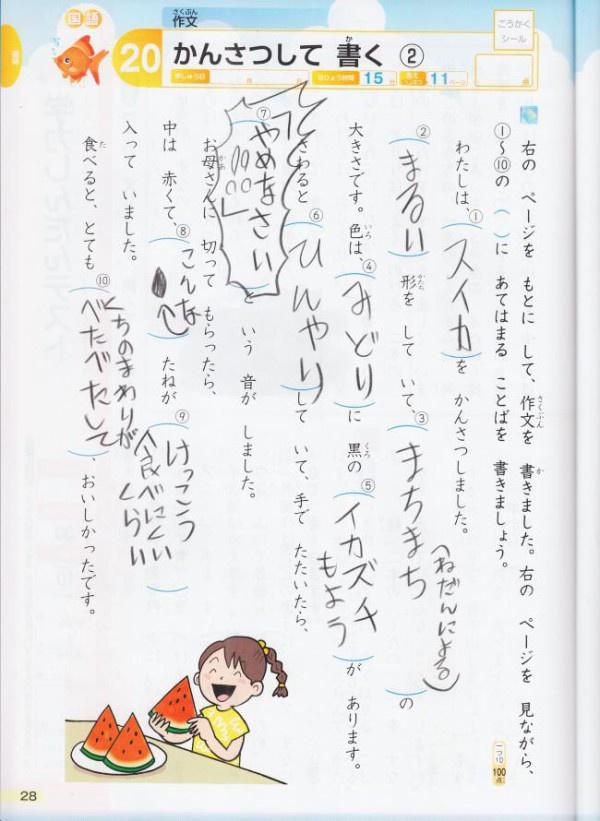 国語
20
さくぶん
作文
かんさつして 書く ②
か
ごうかく
シール
学しゅう日
月
日
もくひょう時間
15
分
答え
11
ページ
点
右の ページを もとに して、作文を 書きました。右の ページを 見ながら、
さくぶん
か
①〜⑩の( )に あてはまる ことばを 書きましょう。
一つ10
100点
わたしは、①(スイカ)を かんさつしました。
②(まるい)形を して いて、③(まちまち(ねだんによる))の
かたち
大きさです。色は、④(みどり)に 黒の ⑤(イカズチもよう)が あります。
いろ
くろ
さわると ⑥(ひんやり)して いて、手で たたいたら、
⑦(「やめなさい!!!!」)と いう 音が しました。
お母さんに 切って もらったら、
かあ
中は 赤くて、⑧(こんな)たねが ⑨(けっこう食べにくいくらい)
入って いました。
食べると、とても ⑩(くちのまわりがべたべたして)、おいしかったです。
た
28